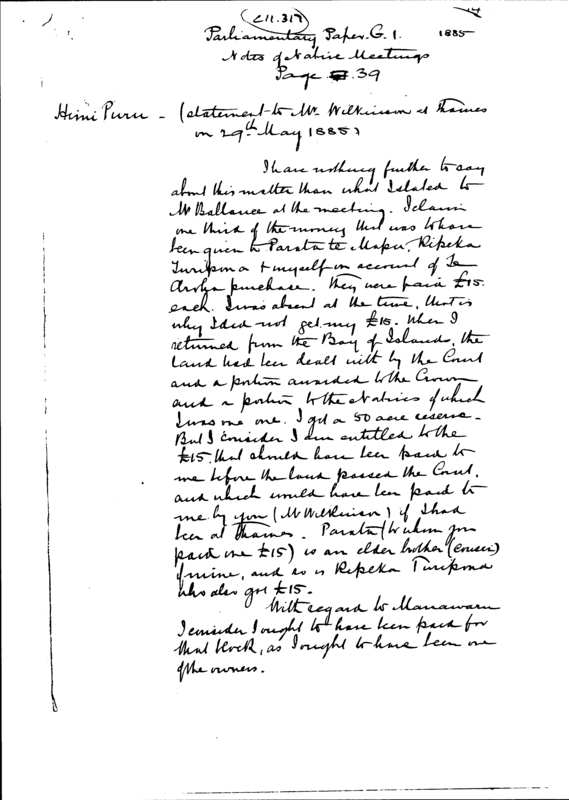 (211.317)
Parliamentary Paper. G. 1. 1885
Notes of Native Meetings
Page 39
Himi Puru - (statement to Mr. Wilkinson at Thames
on 29th May 1885)
I have nothing further to say
about this matter than what I stated to
Mr Ballance at the meeting. I claim
one third of the money that was to have
been given to Parata te Mapu, Ripeka
Turipona & myself on account of Te
Aroha purchase. They were paid £15
each. I was absent at the time, that is
why I did not get my £15. When I
returned from the Bay of Islands, the
land had been dealt with by the Court
and a portion awarded to the Crown
and a portion to the Natives of which
I was one. I got a 50 acre reserve.
But I consider I am entitled to the
£15 that should have been paid to
me before the land passed the Court,
and which would have been paid to
me by you (Mr Wilkinson) if I had
been at Thames. Parata (to whom you
paid one £15) is an elder brother (cousin)
of mine, and so is Ripeka Turipona
who also got £15.
With regard to Manawaru
I consider I ought to have been paid for
that block, as I ought to have been one
of the owners.